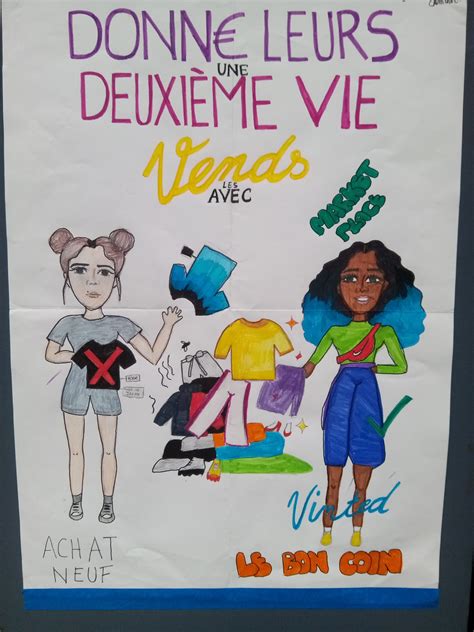 DONN€ LEURS
UNE
DEUXIÈME VIE
Vends
LES
AVEC
MARKET
PLACE
Vinted
ACHAT
NEUF
LE BON COIN